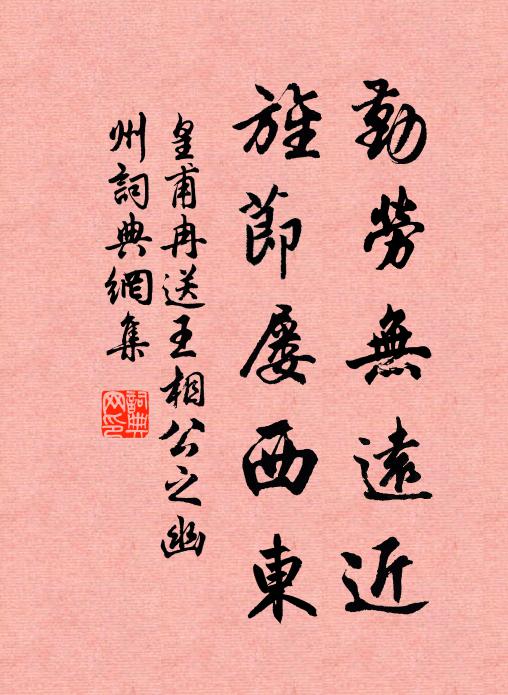 勤勞無遠近
旌節屢西東
皇甫冉送王相公之幽
州詞典網集
詞典
网印